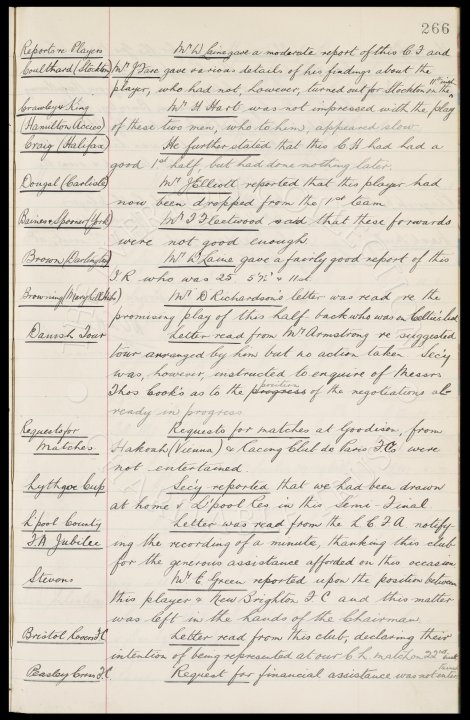 266
Reports re Players Mr W Laine gave a moderate report of this C F and
Coulthard (Stockton) Mr J Fare gave various details of his findings about the
player, who had not, however, turned out for Stockton on the
Crawley & King Mr H Hart was not impressed with the play
(Hamilton Accies) of these two men, who to him, appeared slow
Craig (Halifax) He further stated that this C H had had a
good 1st half, but had done nothing later.
Dougal (Carlisle) Mr J Ellcott reported that this player had
now been dropped from the 1st team
Baines & Spooner (York) Mr T Fleetwood said that these forwards
were not good enough
Brown (Darlington) Mr W Laine gave a fairly good report of this
I R who was 25 5' 7½" & 11 st.
Browning Mr D Richardson's letter was read re the
promising play of this half back who was on
Danish Tour Letter read from Mr Armstrong re suggested
tour arranged by him but no action taken Sec'y
was, however, instructed to enquire of Messrs
Thos Cook's as to the progress position of the negotiations al-
ready in progress
Requests for Requests for matches at Goodison, from
Matches Hakoah (Vienna) & Racong Club de Paris F.Cs were
not entertained
Lythgoe Cup Sec'y reported that we had been drawn
at home v L'pool Res in this Semi-Final
L'pool County Letter was read from the L C F A notify-
F.A Jubilee ing the recording of a minute, thanking this club
for the generous assistance afforded on this occasion
Stevens Mr E Green reported upon the position between
this player & New Brighton F C and this matter
was left in the hands of the Chairman
Bristol Rovers F.C Letter read from this club, declaring their
intention of being represented at our C.L. match on 22nd
Peasley Cross F.C Request for financial assistance was not enter